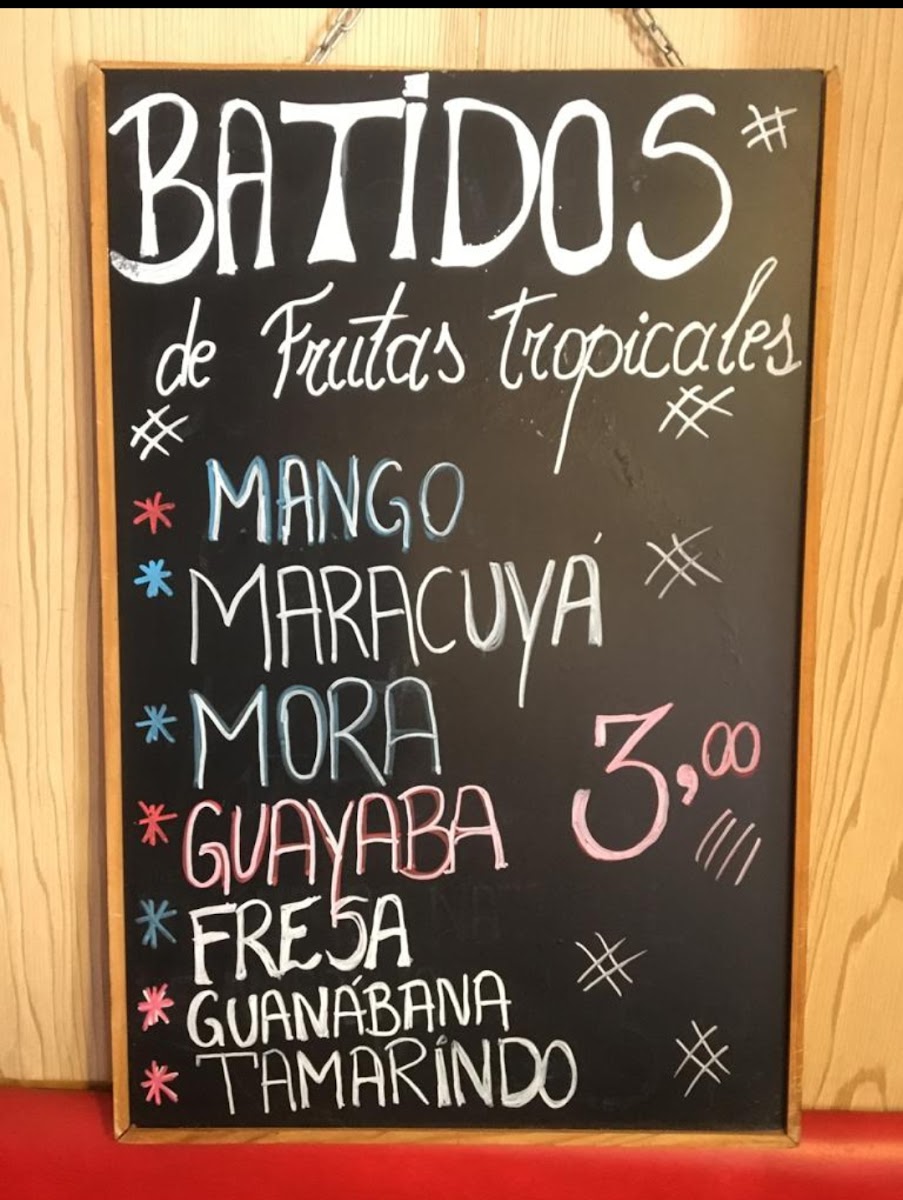 BATIDOS
de Frutas tropicales
* MANGO
* MARACUYÁ
* MORA
3,00
* GUAYABA
* FRESA
* GUANÁBANA
* TAMARINDO